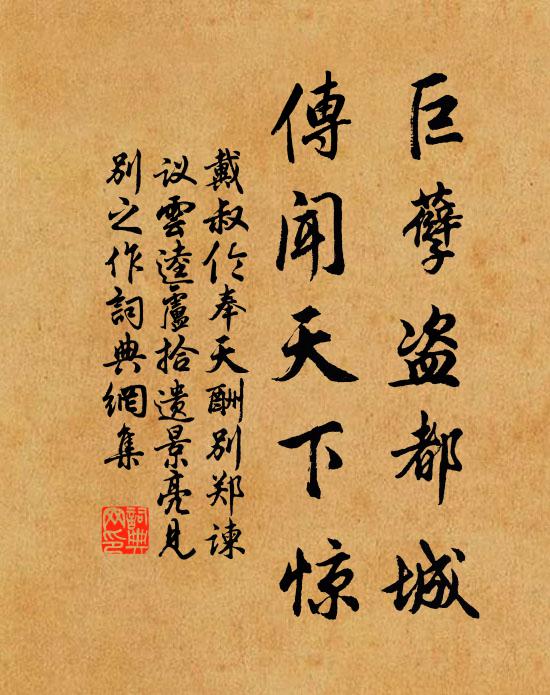 巨孽盗都城
傳闻天下惊
戴叔伦奉天酬别郑谏
议雲逵盧拾遗景亮见
别之作詞典網集